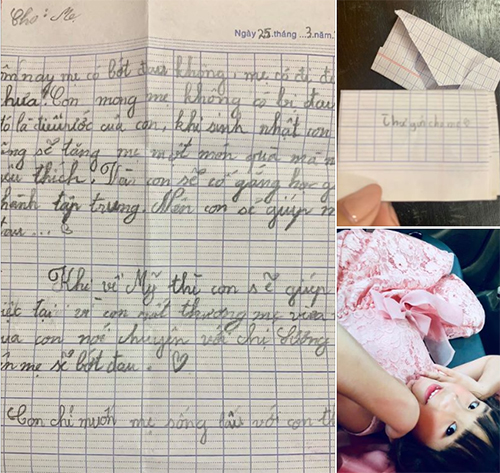 Cho: Mẹ
Ngày 25 tháng ...3.năm.
ôm nay mẹ có bớt đau không, mẹ có đi
hưa! Con mong mẹ không có bị đau
đó là điều ước của con, khi sinh nhật con
ũng sẽ tặng mẹ một món quà mà m
êu thích. Và con sẽ cố gắng học g
hành tập trung. Nên con sẽ giúp m
đau ...
Khi về Mỹ thì con sẽ giúp
iệc tại vì con rất thương mẹ vừa
ua con nói chuyện với chị Sương
ên mẹ sẽ bớt đau. ♡
Con chỉ muốn mẹ sống lâu với con th
Thư gửi cho mẹ ♡